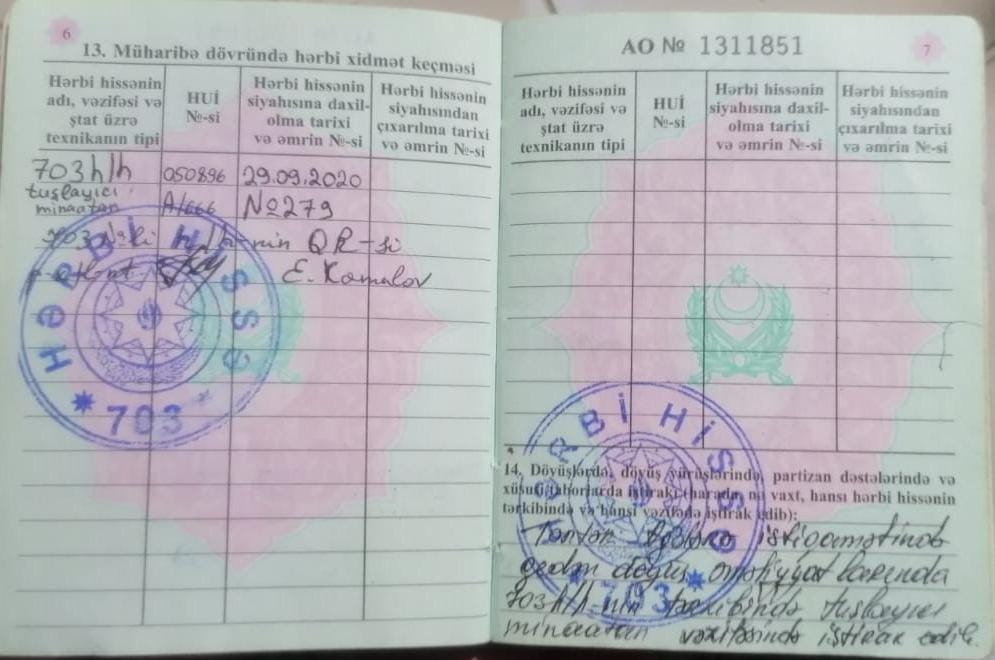 6
13. Müharibə dövründə hərbi xidmət keçməsi
Hərbi hissənin
adı, vəzifəsi və
ştat üzrə
texnikanın tipi
HUİ
№-si
Hərbi hissənin
siyahısına daxil-
olma tarixi
və əmrin №-si
Hərbi hissənin
siyahısından
çıxarılma tarixi
və əmrin №-si
703 h/h
050896
29.09.2020
tuşlayıcı
minaatan
№279
703 h/h-nin QR-si
E. Kamalov
HƏRBİ HİSSƏ
703
AO № 1311851
7
Hərbi hissənin
adı, vəzifəsi və
ştat üzrə
texnikanın tipi
HUİ
№-si
Hərbi hissənin
siyahısına daxil-
olma tarixi
və əmrin №-si
Hərbi hissənin
siyahısından
çıxarılma tarixi
və əmrin №-si
14. Döyüşlərdə, döyüş yürüşlərində, partizan dəstələrində və
xüsusi taborlarda iştirakı (harada, nə vaxt, hansı hərbi hissənin
tərkibində və hansı vəzifədə iştirak edib):
istiqamətində
gedən döyüş əməliyyatlarında
703 h/h-nin tərkibində tuşlayıcı
minaatan vəzifəsində iştirak edib.
HƏRBİ HİSSƏ
703